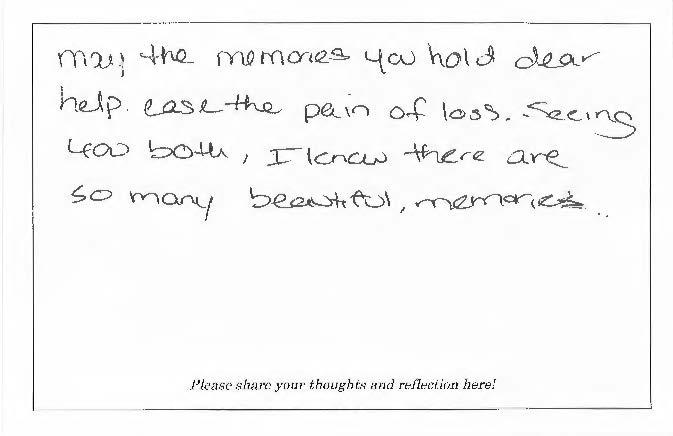 may the memories you hold dear
help ease the pain of loss. Seeing
you both, I know there are
so many beautiful, memories..
Please share your thoughts and reflection here!